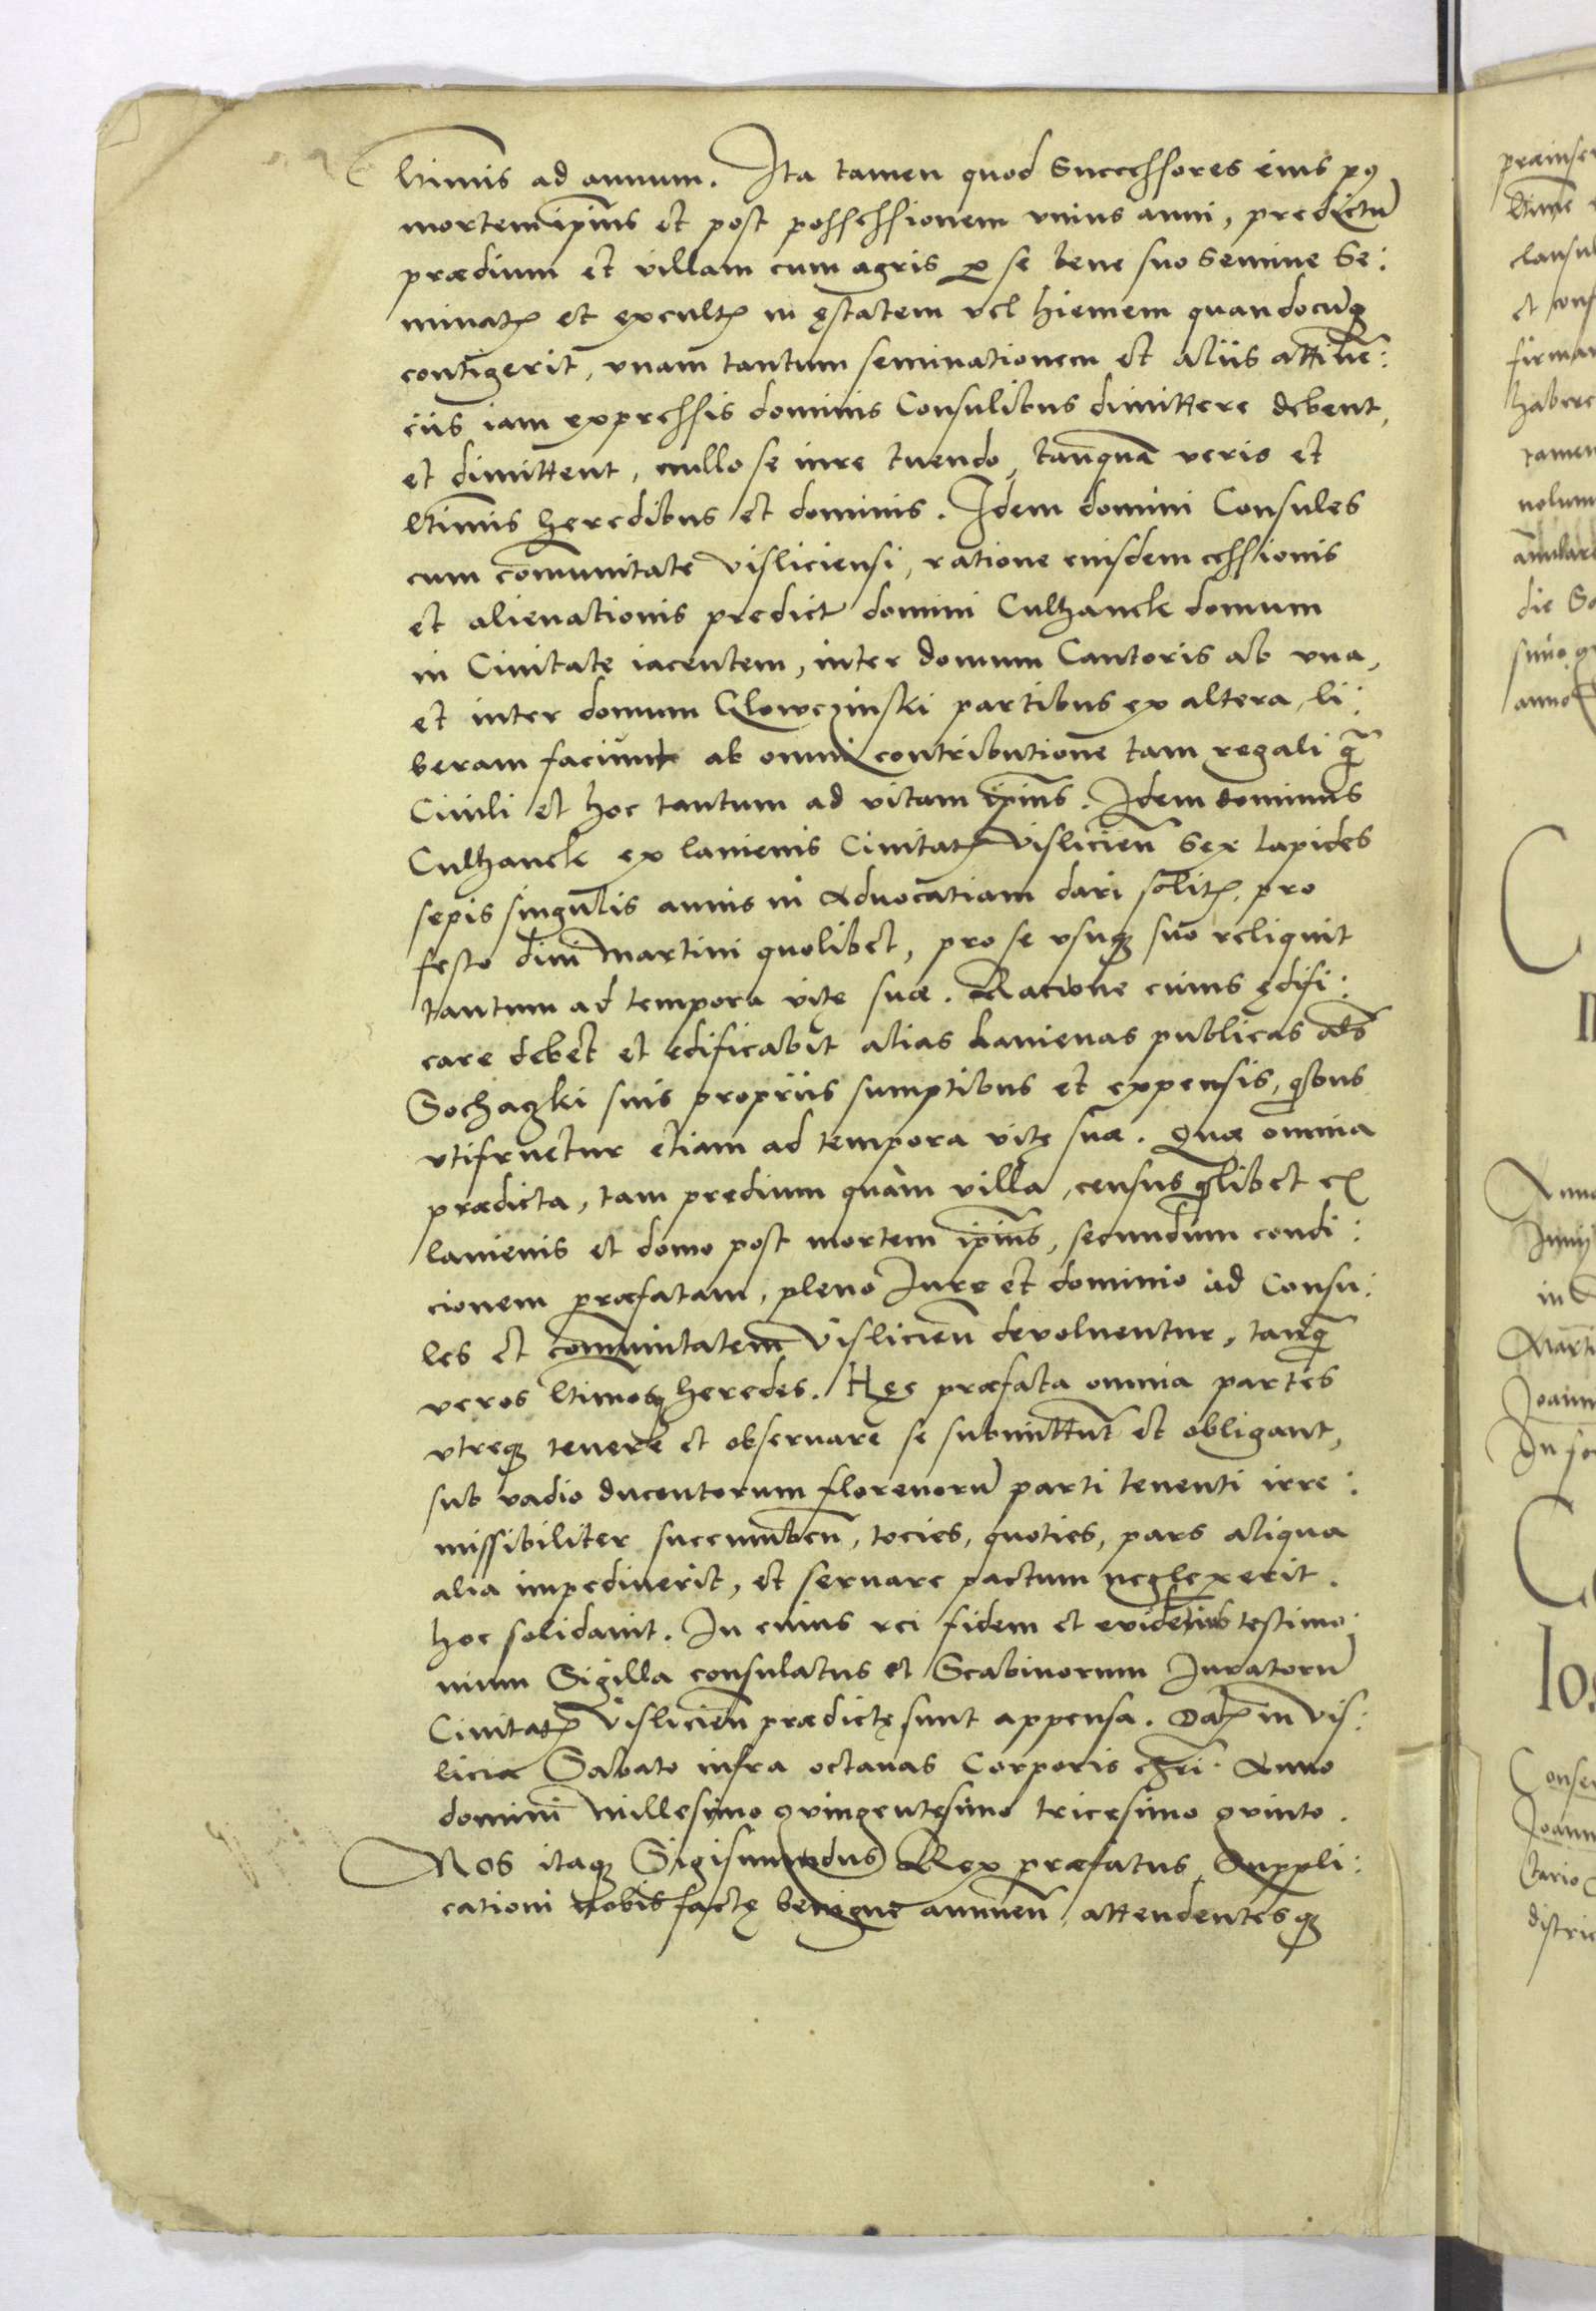 ltimis ad annum. Ita tamen quod Successores eius p9
mortem ipius et post possessionem vnius anni, predictũ
prædium et villam cum agris p se bene suo semine se:
minatꝭ et excultꝭ in ęstatem vel hiemem quandocũqꝫ
contigerit, vnam tantum seminationem et aliis attinē:
ciis iam expressis dominis Consulibus dimittere debent,
et dimittent, nullo se iure tuendo, tanquā veris et
ltimis heredibus et dominis. Idem domini Consules
cum cōmunitate visliciensi, ratione eiusdem cessionis
et alienationis predict domini Culhanek domum
in Ciuitate iacentem, inter domum Cantoris ab vna,
et inter domum Glowczinski partibus ex altera, li:
beram faciunt ab omni contributione tam regali q̄
Ciuili et hoc tantum ad vitam ipius. Idem dominus
Culhanek ex lanienis Ciuitatꝭ vislicień sex lapides
sepis singulis annis in Aduocatiam dari solitꝭ, pro
festo diui Martini quolibet, pro se vsuqꝫ suo reliquit
tantum ad tempora vitę suæ. Racione cuius ędifi:
care debet et edificabit alias Lanienas publicas als
Sochaczki suis propriis sumptibus et expensis, qbus
vtifruetur etiam ad tempora vitę suæ. Quæ omnia
prædicta, tam predium quàm villa, census qlibet ex
lanienis et domo post mortem ipius, secundum condi:
cionem præfatam, pleno Iure et dominio ad Consu:
les et cōmunitatem Vislicień deuoluentur, tanq̄
veros ltimosqꝫ heredes. Hęc præfata omnia partes
vtreqꝫ tenere et obseruare se submittunt et obligant,
sub vadio ducentorum florenorũ parti tenenti irre:
missibiliter succumbeń, tocies, quoties, pars aliqua
alia impediuerit, et seruare pactum neglexerit.
hoc solidauit. In cuius rei fidem et evidentius testimo:
nium Sigilla consulatus et Scabinorum Iuratorũ
Ciuitatꝭ Vislicień prædictę sunt appensa. Datꝭ in Vis:
licia Sabato infra octauas Corporis chri. Anno
domini millesimo qvingentesimo tricesimo qvinto.
Nos itaqꝫ Sigismundus Rex præfatus Suppli:
cationi nobis factę benigne annueń, attendentesqꝫ